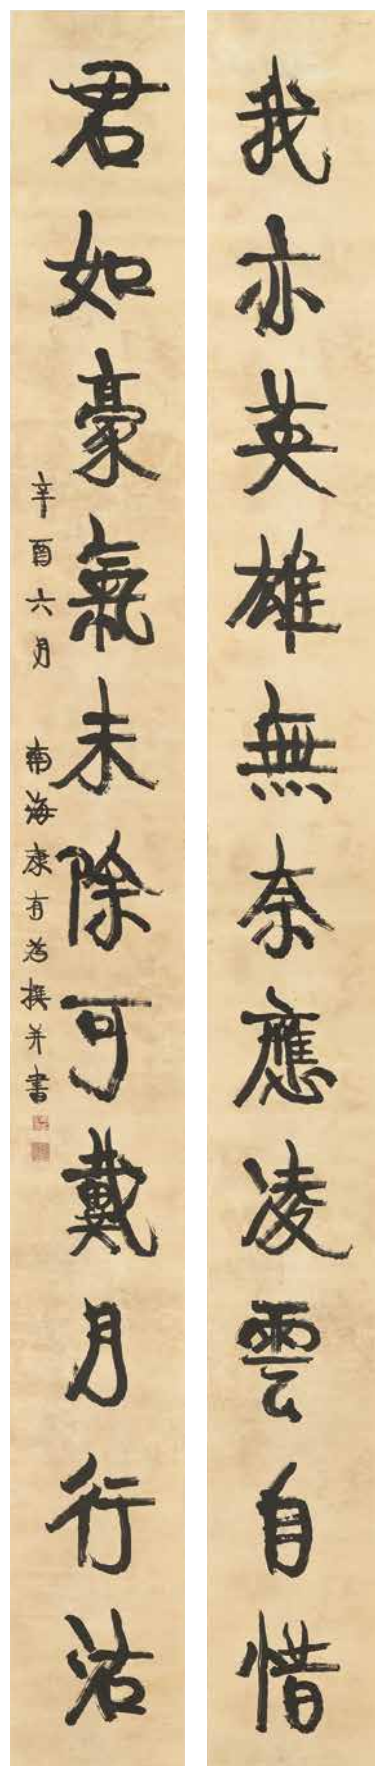 我亦英雄無奈應凌雲自惜
君如豪氣未除可戴月行沽
辛酉六月 南海康有為撰并書